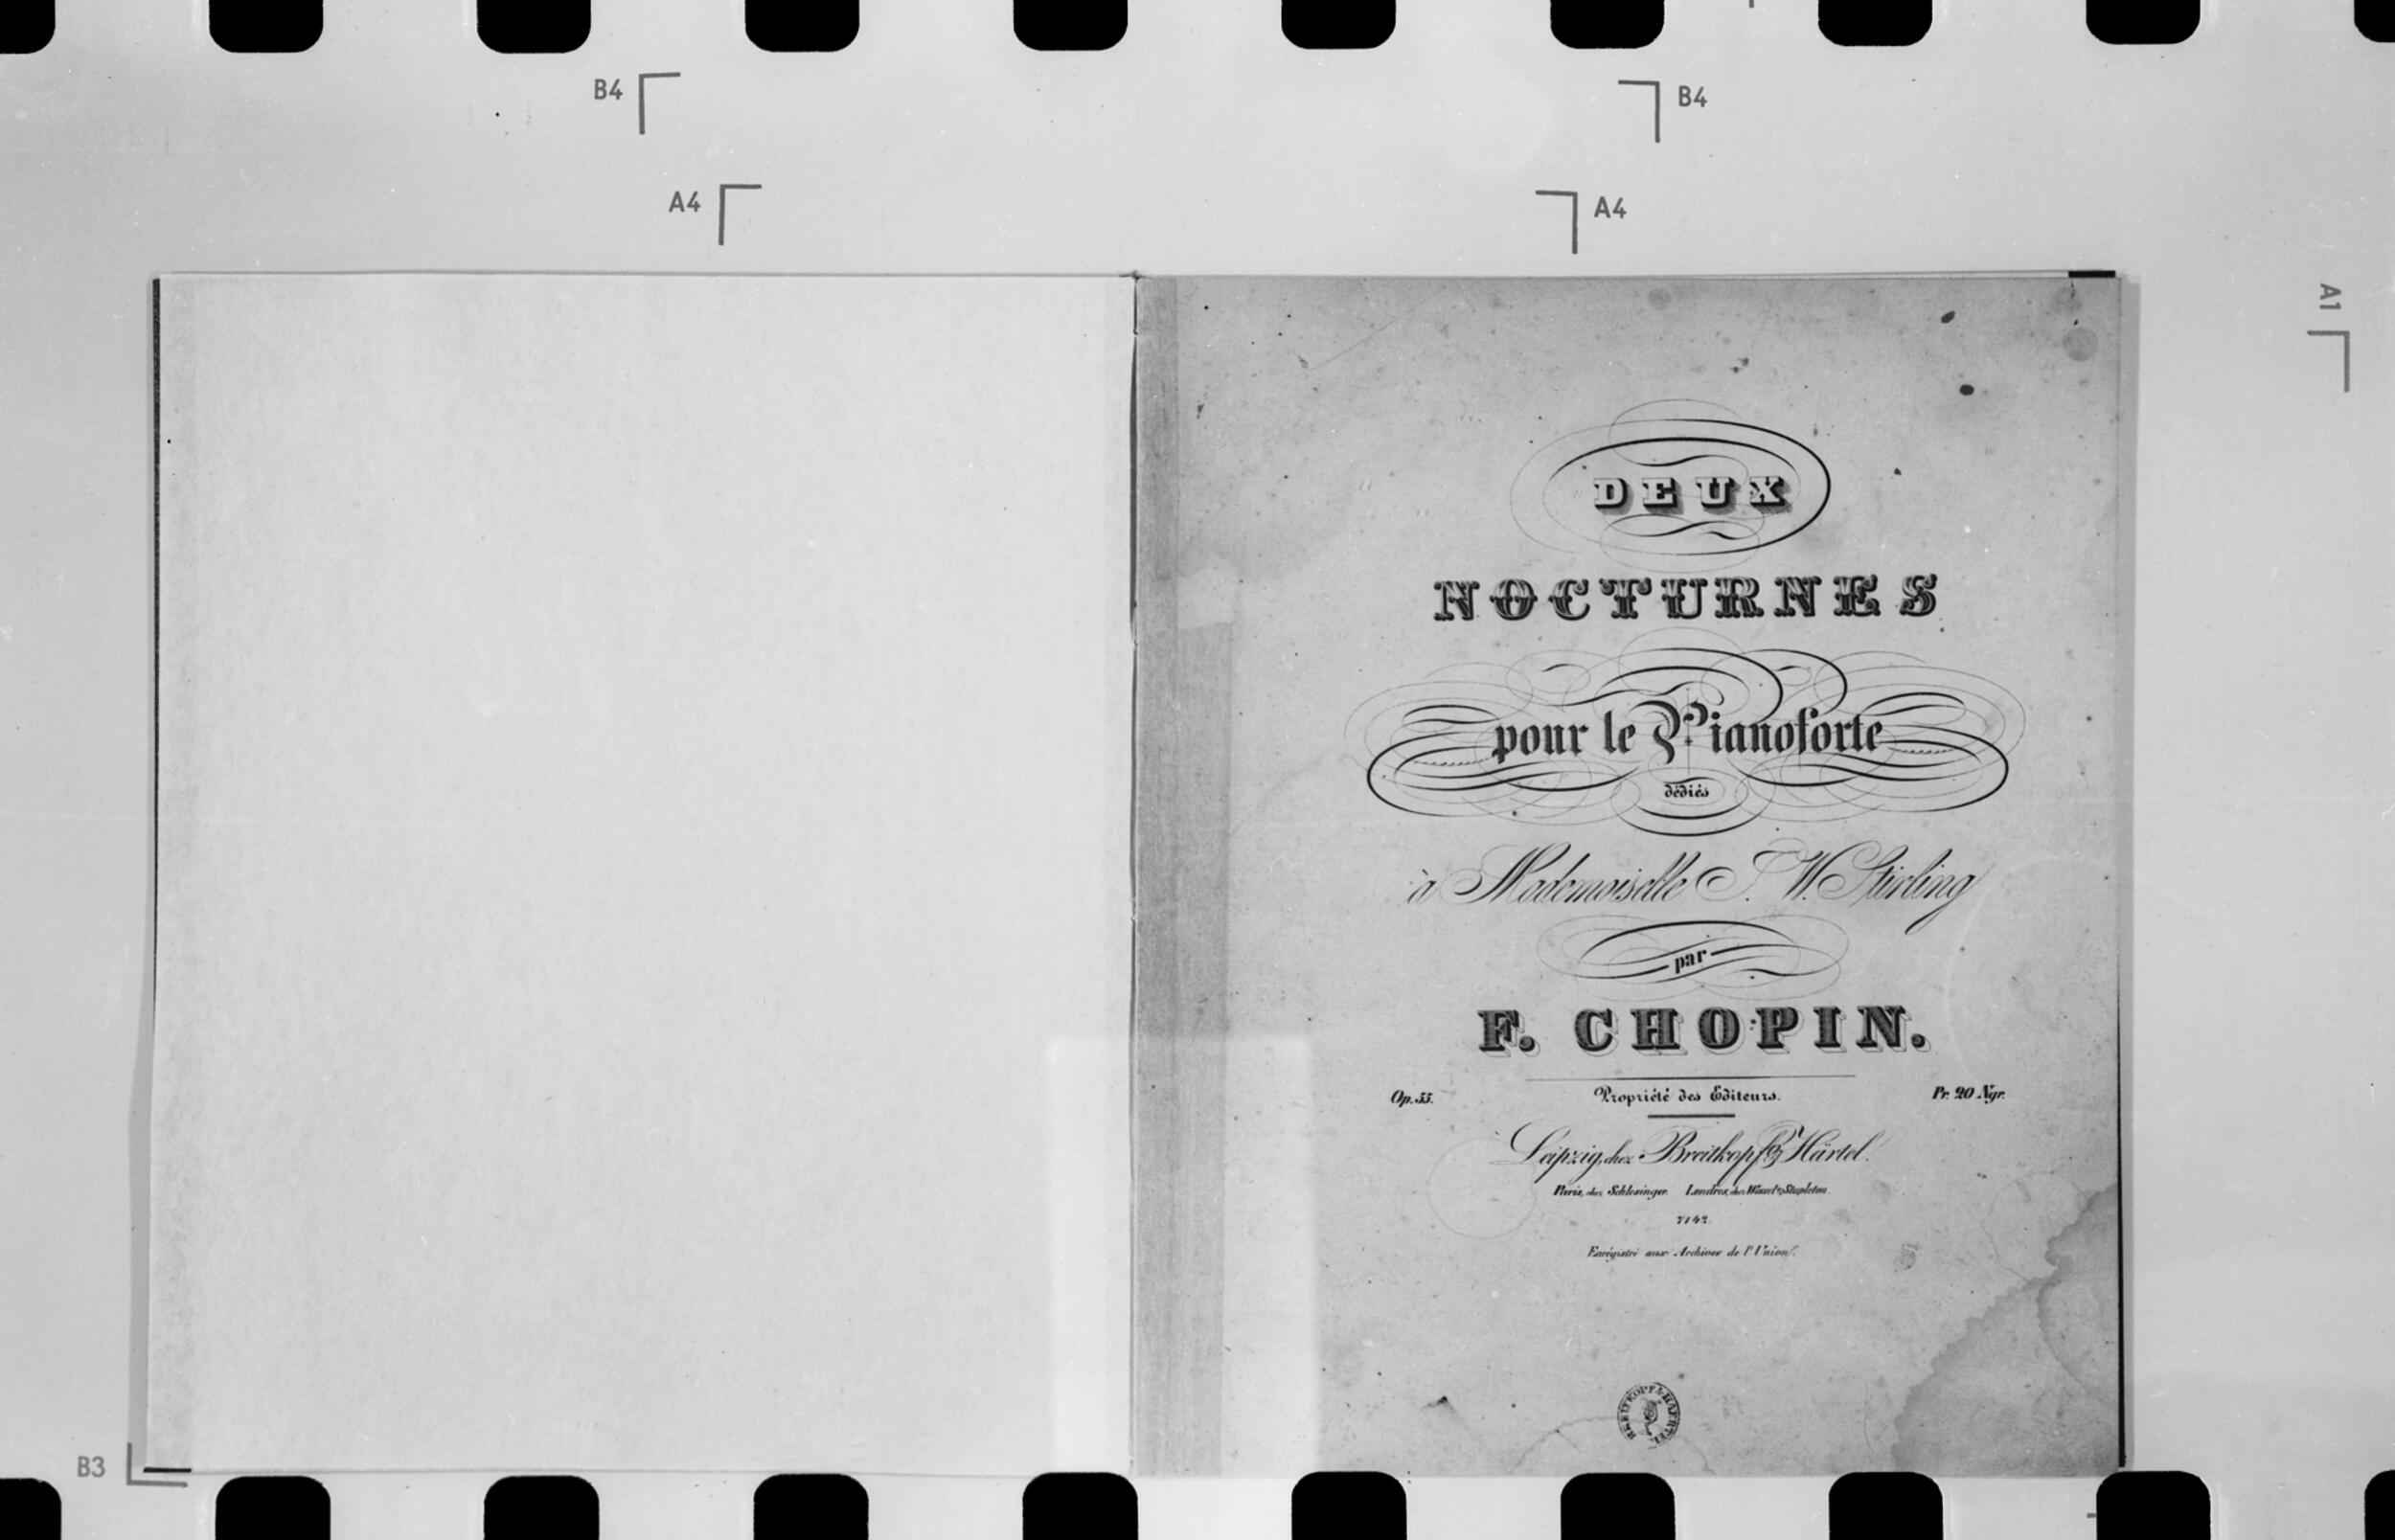 B4
B4
A4
A4
A1
DEUX
NOCTURNES
pour le Pianoforte
dédiés
à Mademoiselle J. W. Stirling
par
F. CHOPIN.
Op. 55.
Propriété des Editeurs.
Pr. 20 Ngr.
Leipzig, chez Breitkopf & Härtel.
Paris, chez Schlesinger. Londres, chez Wessel & Stapleton.
7142.
Enrégistré aux Archives de l'Union.
BREITKOPF & HAERTEL
B3